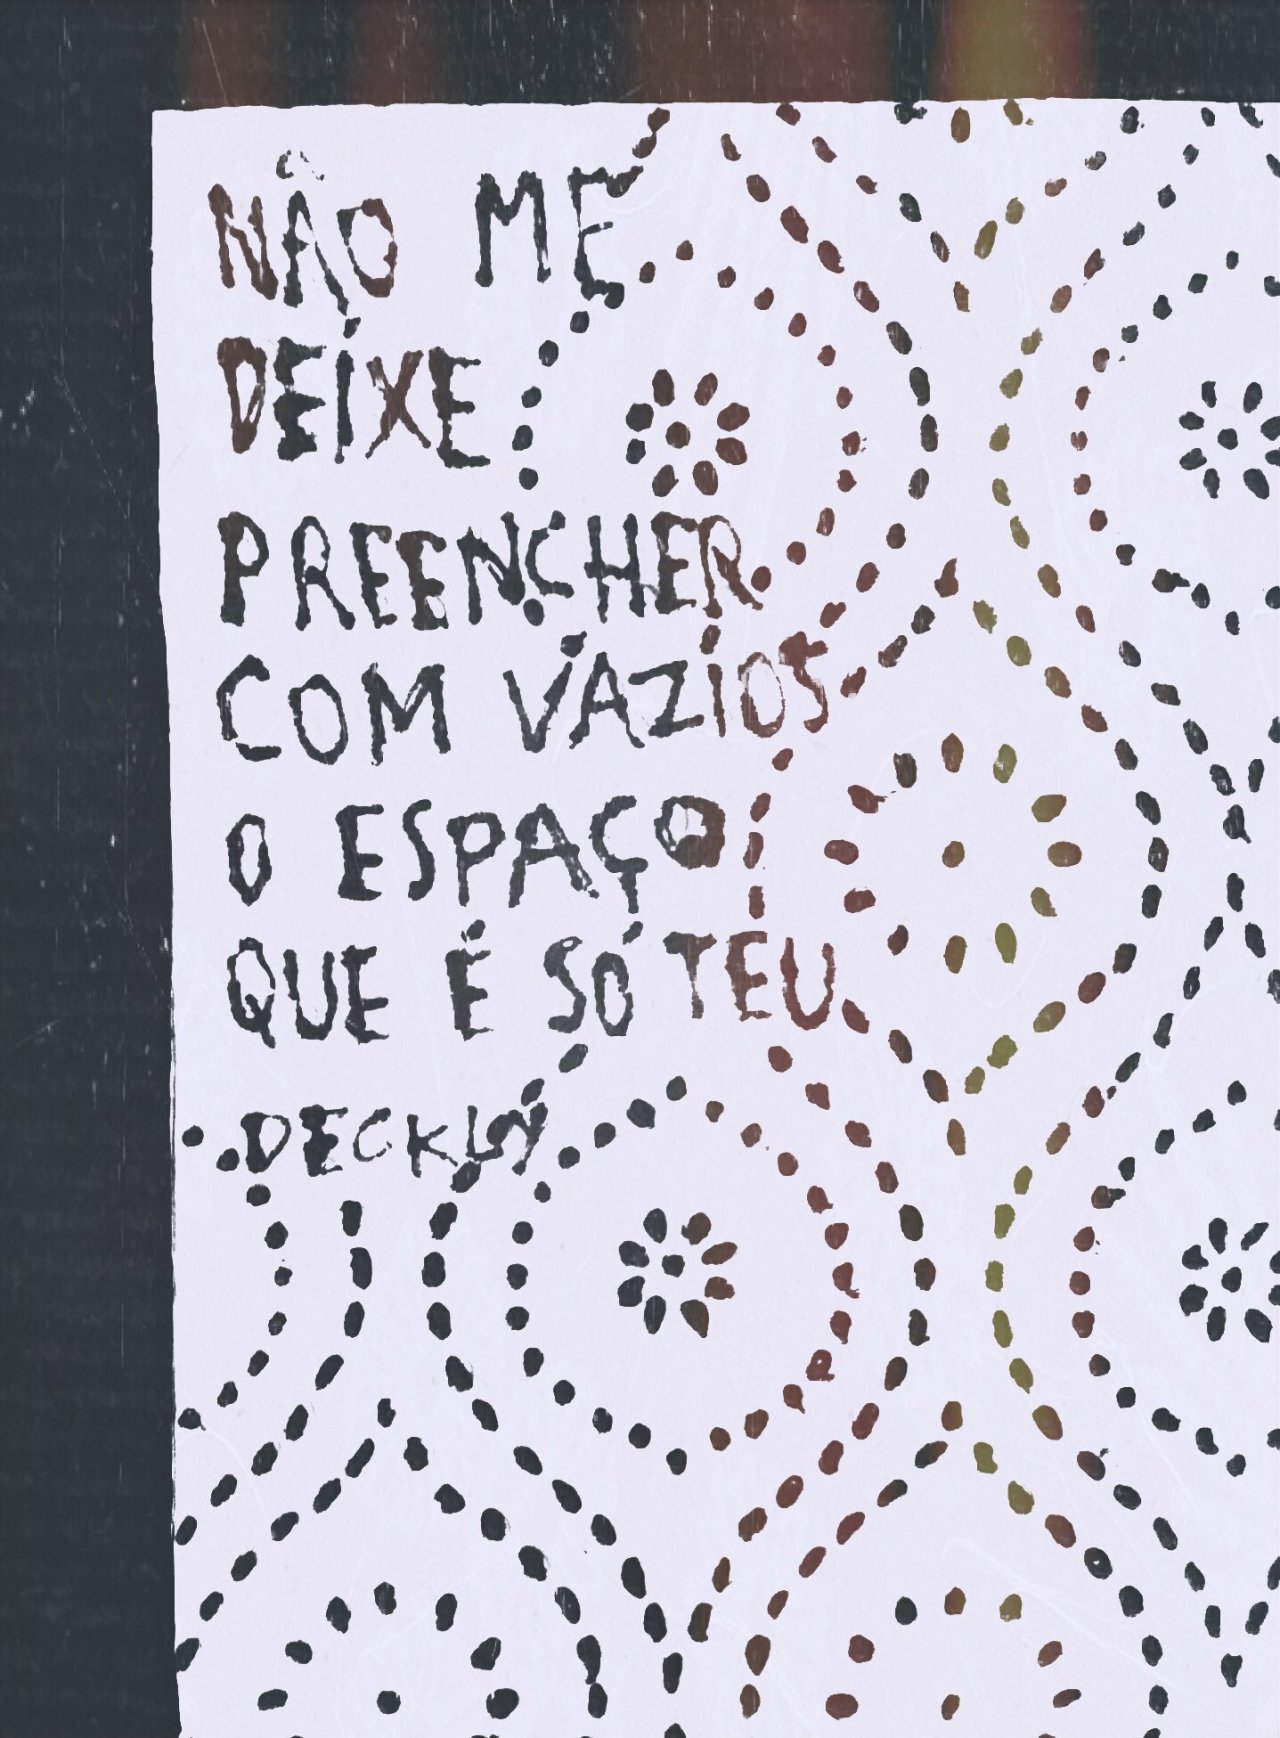 NÃO ME
DEIXE
PREENCHER
COM VAZIOS
O ESPAÇO
QUE É SÓ TEU
DECKLY